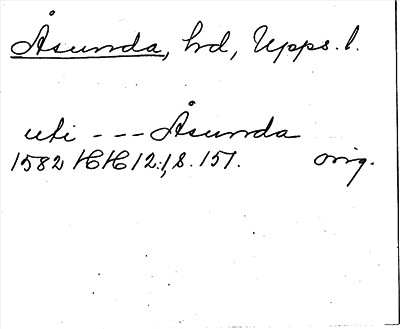 Åsunda, hrd, Upps. l.
uti --- Åsunda
1582 HH 12:1, S. 151. orig.